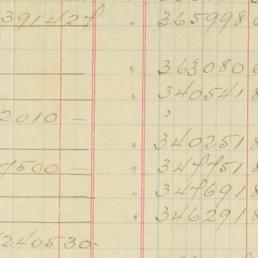 391427 " 365998
— " 363080 6
— " 340541 8
2010 — "
— " 340251 8
7500 — " 347751 8
— " 347691 8
— " 346291 8
240530-